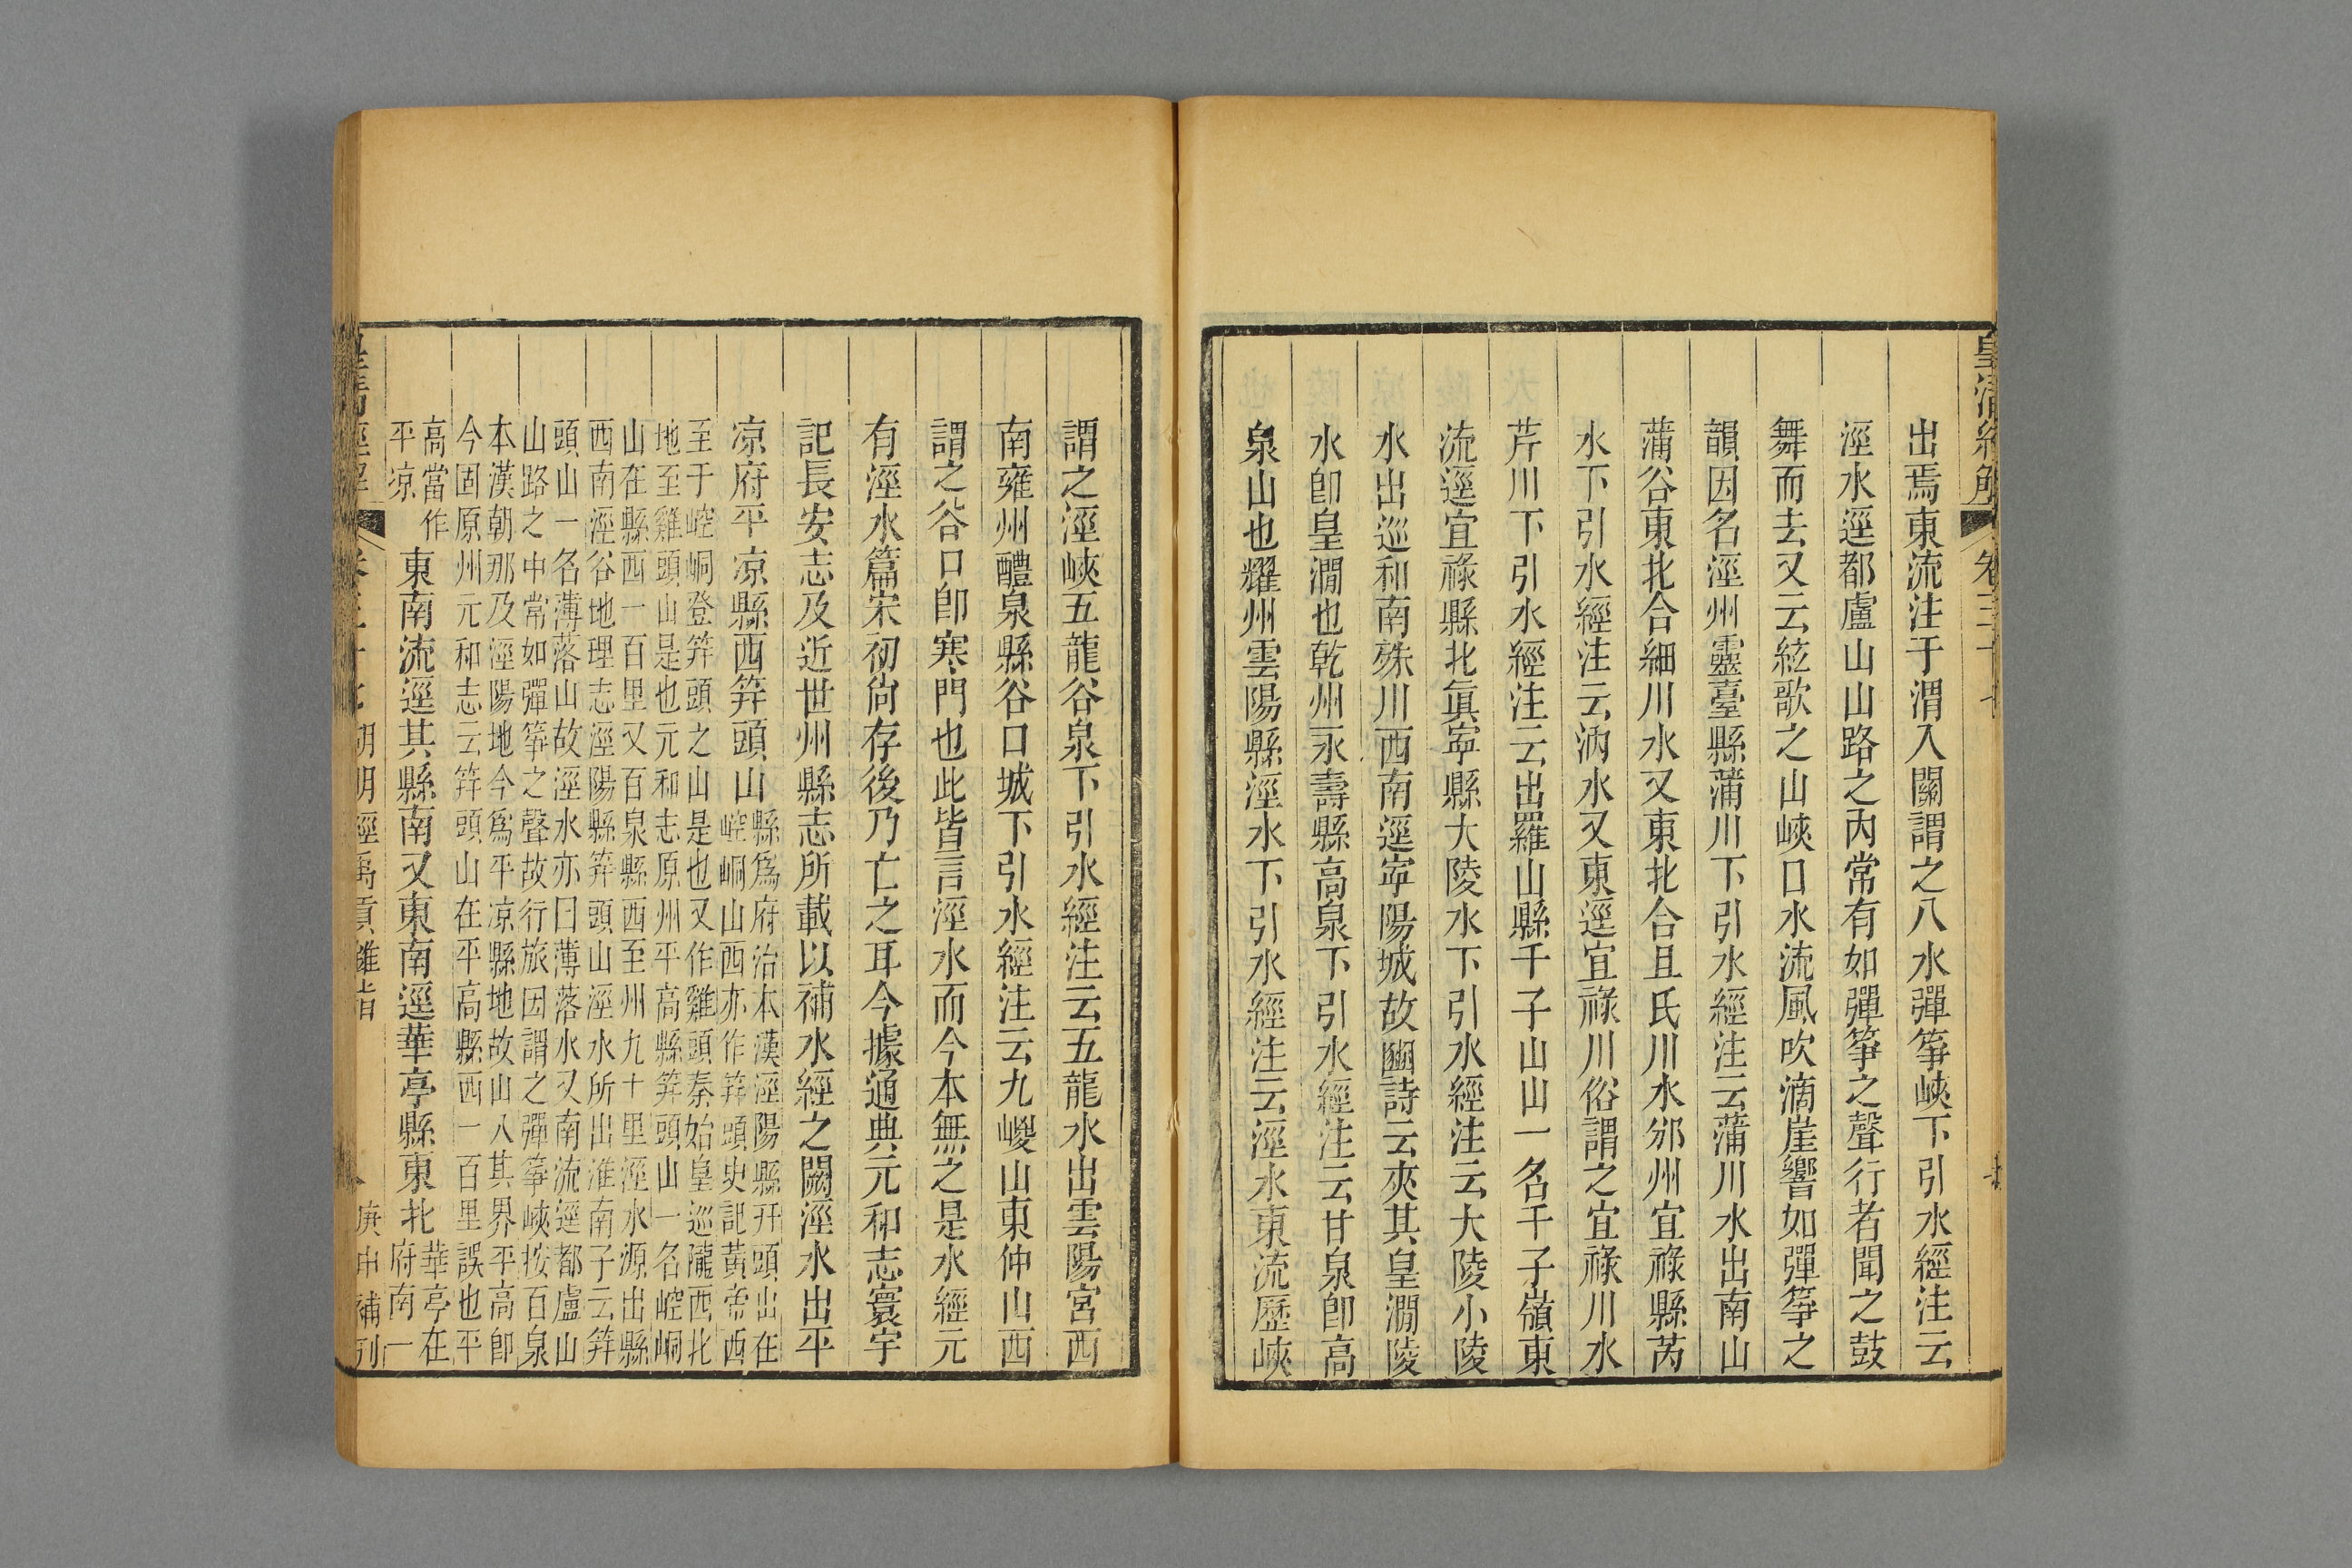 皇清經解 卷三十七
出焉東流注于渭入關謂之八水彈箏峽下引水經注云
涇水逕都盧山山路之內常有如彈箏之聲行者聞之鼓
舞而去又云絃歌之山峽口水流風吹滴崖響如彈箏之
韻因名涇州靈臺縣蒲川下引水經注云蒲川水出南山
蒲谷東北合細川水又東北合且氏川水邠州宜祿縣芮
水下引水經注云汭水又東逕宜祿川俗謂之宜祿川水
芹川下引水經注云出羅山縣千子山山一名千子嶺東
流逕宜祿縣北眞寧縣大陵水下引水經注云大陵小陵
水出巡和南殊川西南逕寧陽城故豳詩云夾其皇澗陵
水卽皇澗也乾州永壽縣高泉下引水經注云甘泉卽高
泉山也耀州雲陽縣涇水下引水經注云涇水東流歷峽
謂之涇峽五龍谷泉下引水經注云五龍水出雲陽宮西
南雍州醴泉縣谷口城下引水經注云九嵕山東仲山西
謂之谷口卽寒門也此皆言涇水而今本無之是水經元
有涇水篇宋初尙存後乃亡之耳今據通典元和志寰宇
記長安志及近世州縣志所載以補水經之闕涇水出平
凉府平凉縣西笄頭山
縣爲府治本漢涇陽縣幵頭山在
崆峒山西亦作笄頭史記黃帝西
至于崆峒登笄頭之山是也又作雞頭秦始皇巡隴西北
地至雞頭山是也元和志原州平高縣笄頭山一名崆峒
山在縣西一百里又百泉縣西至州九十里涇水源出縣
西南涇谷地理志涇陽縣笄頭山涇水所出淮南子云笄
頭山一名薄落山故涇水亦曰薄落水又南流逕都盧山
山路之中常如彈箏之聲故行旅因謂之彈箏峽按百泉
本漢朝那及涇陽地今爲平凉縣地故山入其界平高卽
今固原州元和志云笄頭山在平高縣西一百里誤也平
高當作
平凉
東南流逕其縣南又東南逕華亭縣東北
華亭在
府南一
皇清經解 卷三十七 胡明經禹貢錐指 庚申補刊